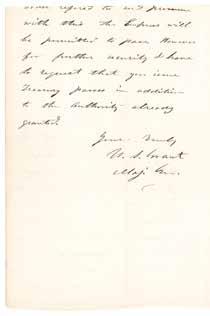 order refered to and presume
with this the Express will
be permitted to pass. However
for further security I have
to request that you issue
Treasury passes in addition
to the authority already
granted.
Yours Truly
U. S. Grant
Maj. Gen.